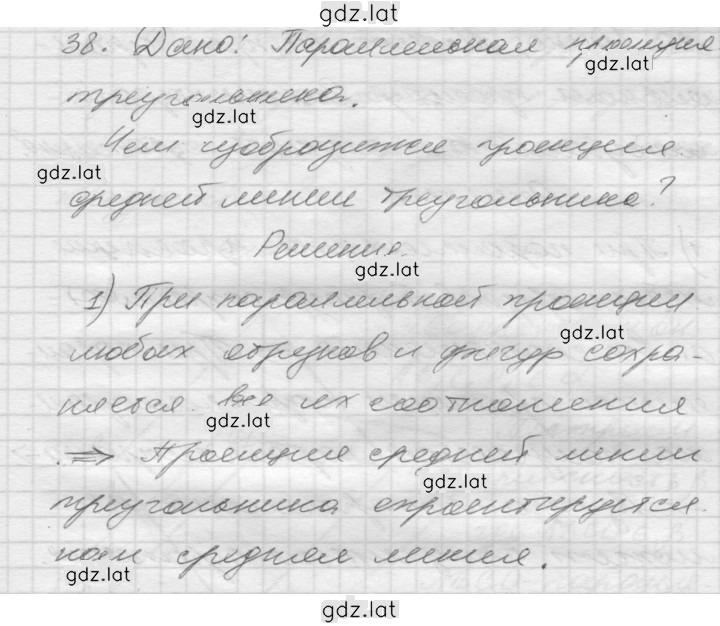 gdz.lat
38. Дано: Параллельная проекция
gdz.lat
треугольника.
gdz.lat
Чем изобразится проекция
gdz.lat
средней линии треугольника?
Решение.
gdz.lat
1) При параллельной проекции
gdz.lat
любых отрезков и фигур сохра-
няется все их соотношения
gdz.lat
. => Проекция средней линии
gdz.lat
треугольника спроектируется
как средняя линия.
gdz.lat
gdz.lat